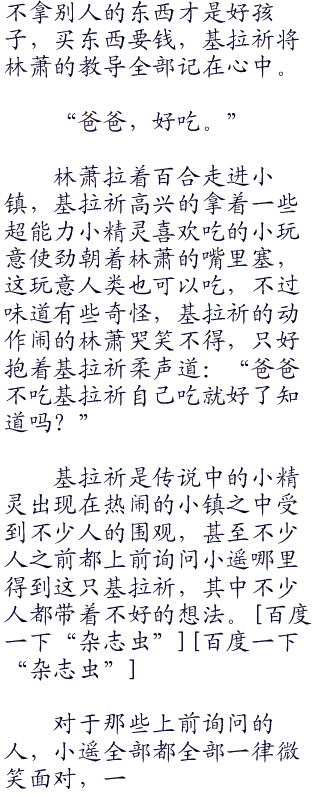 不拿别人的东西才是好孩
子，买东西要钱，基拉祈将
林萧的教导全部记在心中。
“爸爸，好吃。”
林萧拉着百合走进小
镇，基拉祈高兴的拿着一些
超能力小精灵喜欢吃的小玩
意使劲朝着林萧的嘴里塞，
这玩意人类也可以吃，不过
味道有些奇怪，基拉祈的动
作闹的林萧哭笑不得，只好
抱着基拉祈柔声道：“爸爸
不吃基拉祈自己吃就好了知
道吗？”
基拉祈是传说中的小精
灵出现在热闹的小镇之中受
到不少人的围观，甚至不少
人之前都上前询问小遥哪里
得到这只基拉祈，其中不少
人都带着不好的想法。[百度
一下“杂志虫”][百度一下
“杂志虫”]
对于那些上前询问的
人，小遥全部都全部一律微
笑面对，一